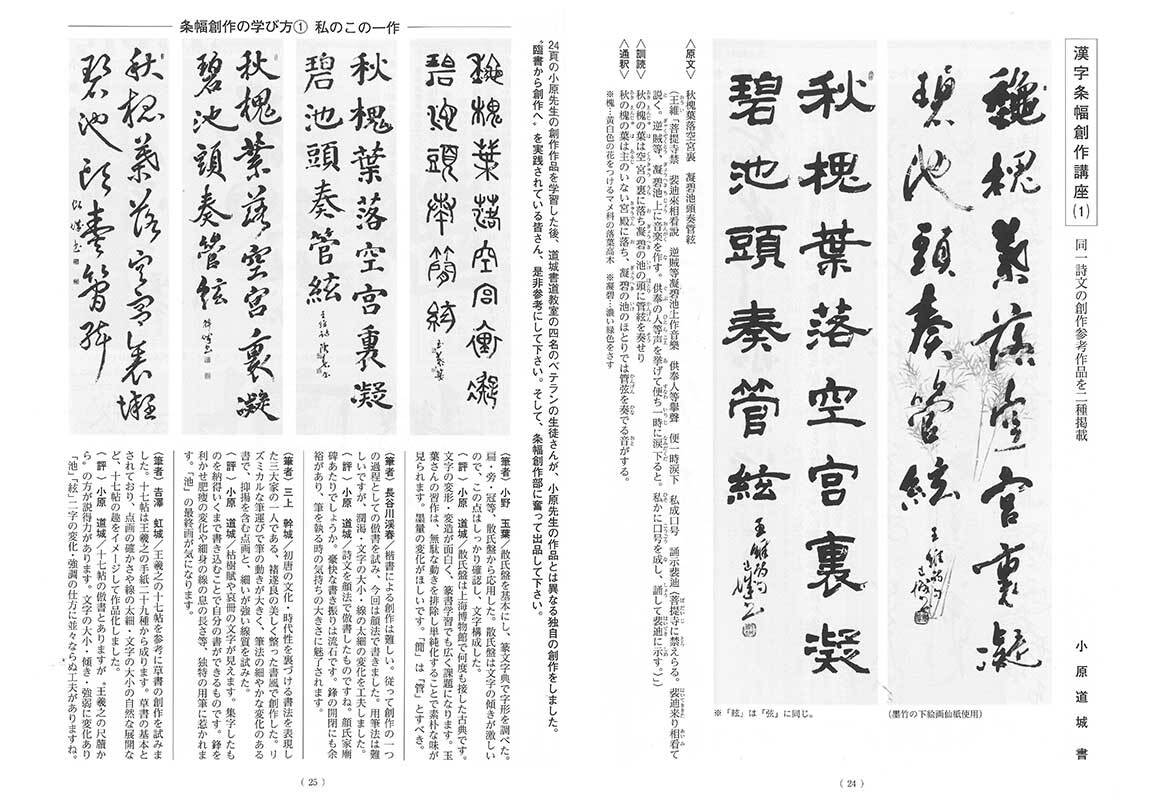 漢字条幅創作講座(1)
同一詩文の創作参考作品を二種掲載
小原道城 書
秋槐葉落空宮裏凝
碧池頭奏管絃
(墨竹の下絵画仙紙使用)
秋槐葉落空宮裏凝
碧池頭奏管絃
※「絃」は「弦」に同じ。
〈原文〉
秋槐葉落空宮裏 凝碧池頭奏管絃
(王維「菩提寺禁 裴迪來相看說 逆賊等凝碧池上作音樂 供奉人等擧聲 便一時淚下 私成口号 誦示裴迪(菩提寺に禁えらる。裴迪来り相看て
説く。逆賊等、凝碧池上に音楽を作す。供奉の人等声を挙げて便ち一時に涙下ると。私かに口号を成し、誦して裴迪に示す。)」)
〈訓読〉
秋の槐の葉は空宮の裏に落ち凝碧の池の頭に管絃を奏せり
〈通釈〉
秋の槐の葉は主のいない宮殿に落ち、凝碧の池のほとりでは管弦を奏でる音がする。
※槐…黄白色の花をつけるマメ科の落葉高木 ※凝碧…濃い緑色をさす
(24)
条幅創作の学び方① 私のこの一作
24頁の小原先生の創作作品を学習した後、道城書道教室の四名のベテランの生徒さんが、小原先生の作品とは異なる独自の創作をしました。
“臨書から創作へ”を実践されている皆さん、是非参考にして下さい。そして、条幅創作部に奮って出品して下さい。
秋槐葉落空宮裏凝
碧池頭奏管絃
秋槐葉落空宮裏凝
碧池頭奏管絃
秋槐葉落空宮裏凝
碧池頭奏管絃
秋槐葉落空宮裏凝
碧池頭奏管絃
(筆者)小野 玉葉/散氏盤を基本にし、篆文字典で字形を調べた。
扁・旁・冠等、散氏盤から応用した。散氏盤は文字の傾きが激しい
ので、この点はしっかり確認し、文字構成した。
(評)小原 道城/散氏盤は上海博物館で何度も接した古典です。
文字の変形・変造が面白く、篆書学習でも広く課題になります。玉
葉さんの習作は、無駄な動きを排除し単純化することで素朴な味が
見られます。墨量の変化がほしいです。「簡」は「管」とすべき。
(筆者)長谷川渓春/楷書による創作は難しい。従って創作の一つ
の過程としての倣書を試み、今回は顔法で書きました。用筆法は難
しいですが、潤渇・文字の大小・線の太細の変化を工夫しました。
(評)小原 道城/詩文を顔法で倣書したものですね。顔氏家廟
碑あたりでしょうか。豪快な書き振りは流石です。鋒の開閉にも余
裕があり、筆を執る時の気持ちの大きさに魅了されます。
(筆者)三上 幹城/初唐の文化・時代性を裏づける書法を表現し
た三大家の一人である、褚遂良の美しく整った書風で創作した。リ
ズミカルな筆運びで筆の動きが大きく、筆法の細やかな変化のある
書で、抑揚を含む点画と、細いが強い線質を試みた。
(評)小原 道城/枯樹賦や哀冊の文字が見えます。集字したも
のを納得いくまで書き込むことで自分の書ができるものです。鋒を
利かせ肥痩の変化や細身の線の息の長さ等、独特の用筆に惹かれま
す。「池」の最終画が気になります。
(筆者)吉澤 虹城/王羲之の十七帖を参考に草書の創作を試みま
した。十七帖は王羲之の手紙二十九種から成ります。草書の基本と
されており、点画の確かさや線の太細・文字の大小の自然な展開な
ど、十七帖の趣をイメージして作品化しました。
(評)小原 道城/十七帖の倣書とありますが“王羲之の尺牘か
ら”の方が説得力があります。文字の大小・傾き・強弱に変化あり
「池」「絃」二字の変化・強調の仕方に並々ならぬ工夫がありますね。
(25)